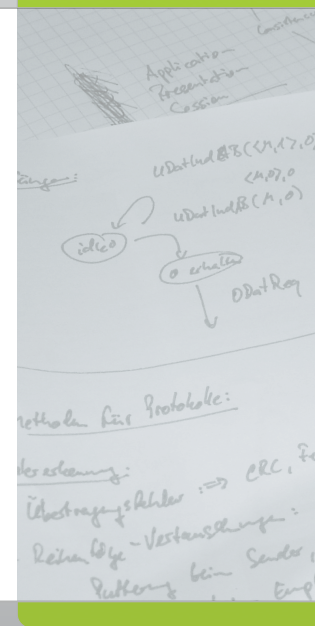 Consistence
Application
Presentation
Session
UDatInd&B(<M,1>,0)
<M,0>,0
UDatIndB(M,0)
idle0
0 erhalten
ODatReq
Methoden für Protokolle:
Übertragungsfehler :=> CRC,
Reihenfolge-Vertauschungen:
Pufferung beim Sender,